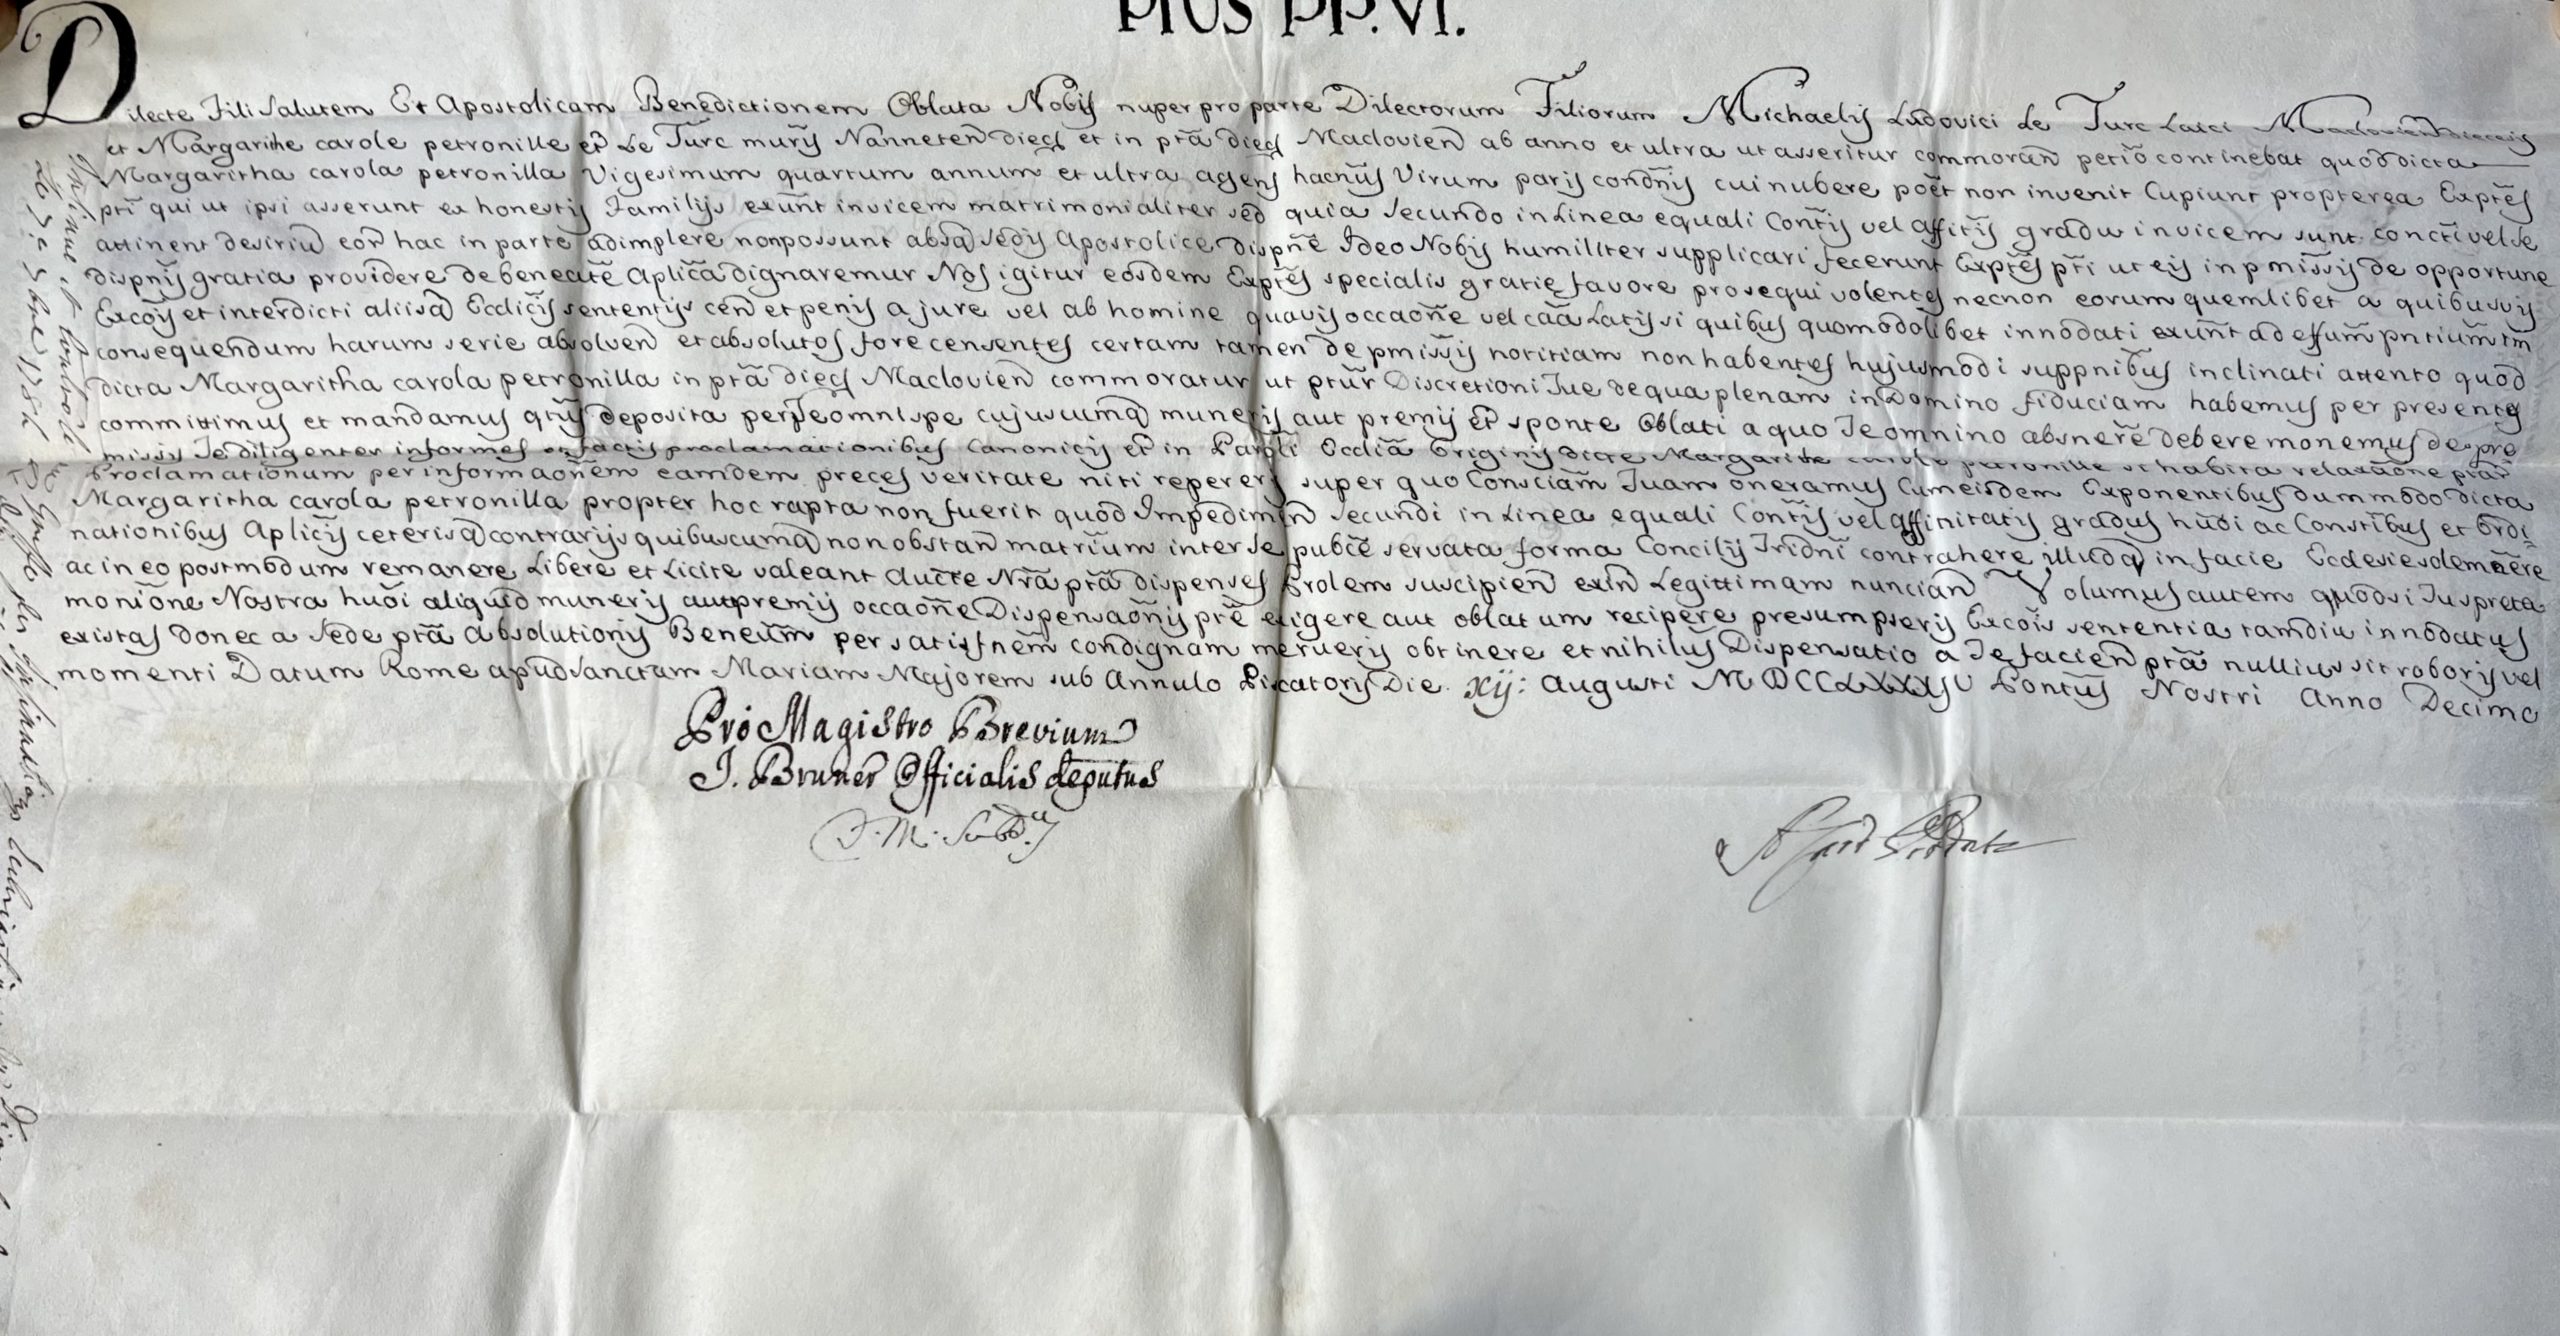 PIUS PP. VI.
Dilecte Fili Salutem Et Apostolicam Benedictionem Oblata Nobis nuper pro parte Dilectorum Filiorum Michaelis Ludovici Le Turc Laici Maclovien diecis
et Margarithe carole petronille et Le Turc murijs Nanneten diecs et in ptã diecs Maclovien ab anno et ultra ut asseritur commoran petiõ continebat quod dicta
Margaritha carola petronilla Vigesimum quartum annum et ultra agens hacnus Virum paris condnis cui nubere poet non invenit Cupiunt propterea Exptes
ptri qui ut ipsi asserunt ex honestis Familijs exunt invicem matrimonialiter sed quia secundo in Linea equali Contis vel affitis gradu invicem sunt conctivel se
attinent desiriu eor hac in parte adimplere non possunt absq sedis Apostolice dispne Ideo Nobis humillter supplicari fecerunt Exptes ptri ut eis in pmissis de opportune
dispnis gratia providere de beneate Aplica dignaremur Nos igitur eosdem Exptes specialis gratie favore prosequi volentes necnon eorum quemlibet a quibusvis
Excois et interdicti aliisq Ecclicis sententijs cen et penis a jure vel ab homine quavis occaone vel caa Latis si quibus quomodolibet innodati exunt ad effum pntium tm
consequendum harum serie absolven et absolutos fore censentes certam tamen de pmissis notitiam non habentes hujusmodi suppnibus inclinati attento quod
dicta Margaritha carola petronilla in ptã diecs Maclovien commoratur ut ptur Discretioni Tue de qua plenam in Domino fiduciam habemus per presentes
committimus et mandamus qtus deposita per Te omni spe cujuscumq muneris aut premij et sponte oblati a quo Te omnino absnere debere monemus de pre
missis Te diligenter informes et factis proclamationibus Canonicis et in Paroli Ecclia Originis dicte Margarithe carole petronille et habita relaxaone ptar
Proclamationum per informaonem eamdem preces veritate niti repereris super quo Consciam Tuam oneramus Cum eisdem Exponentibus dummodo dicta
Margaritha carola petronilla propter hoc rapta non fuerit quod Impedimen secundi in Linea equali Contis vel affinitatis gradus hudi ac Constibus et Ordi
nationibus Aplicis ceterisq contrarijs quibuscumq non obstan matrium inter se pubce servata forma Concilij Tridni contrahere illudq in facie Ecclesie solemnere
ac in eo postmodum remanere Libere et Licite valeant Aucte Nra ptã dispenses Prolem suscipien exin Legittimam nuncian Volumus autem quod si Tu spreta
monione Nostra hudi aliquid muneris aut premij occaone Dispensaonis pre exigere aut oblatum recipere presumpseris Excois sententia tamdiu innodatus
existas donec a Sede ptã Absolutionis Beneium per satisfnem condignam merueris obtinere et nihilus Dispensatio a Te facien ptã nullius sit roboris vel
momenti Datum Rome apud Sanctam Mariam Majorem sub Annulo Piscatoris Die xij: Augusti MDCCLXXXIV Pontus Nostri Anno Decimo
Pro Magistro Brevium
J. Bruner Officialis deputus